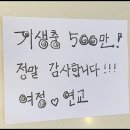 기생충 500만!
정말 감사합니다!!!
여정♡연교